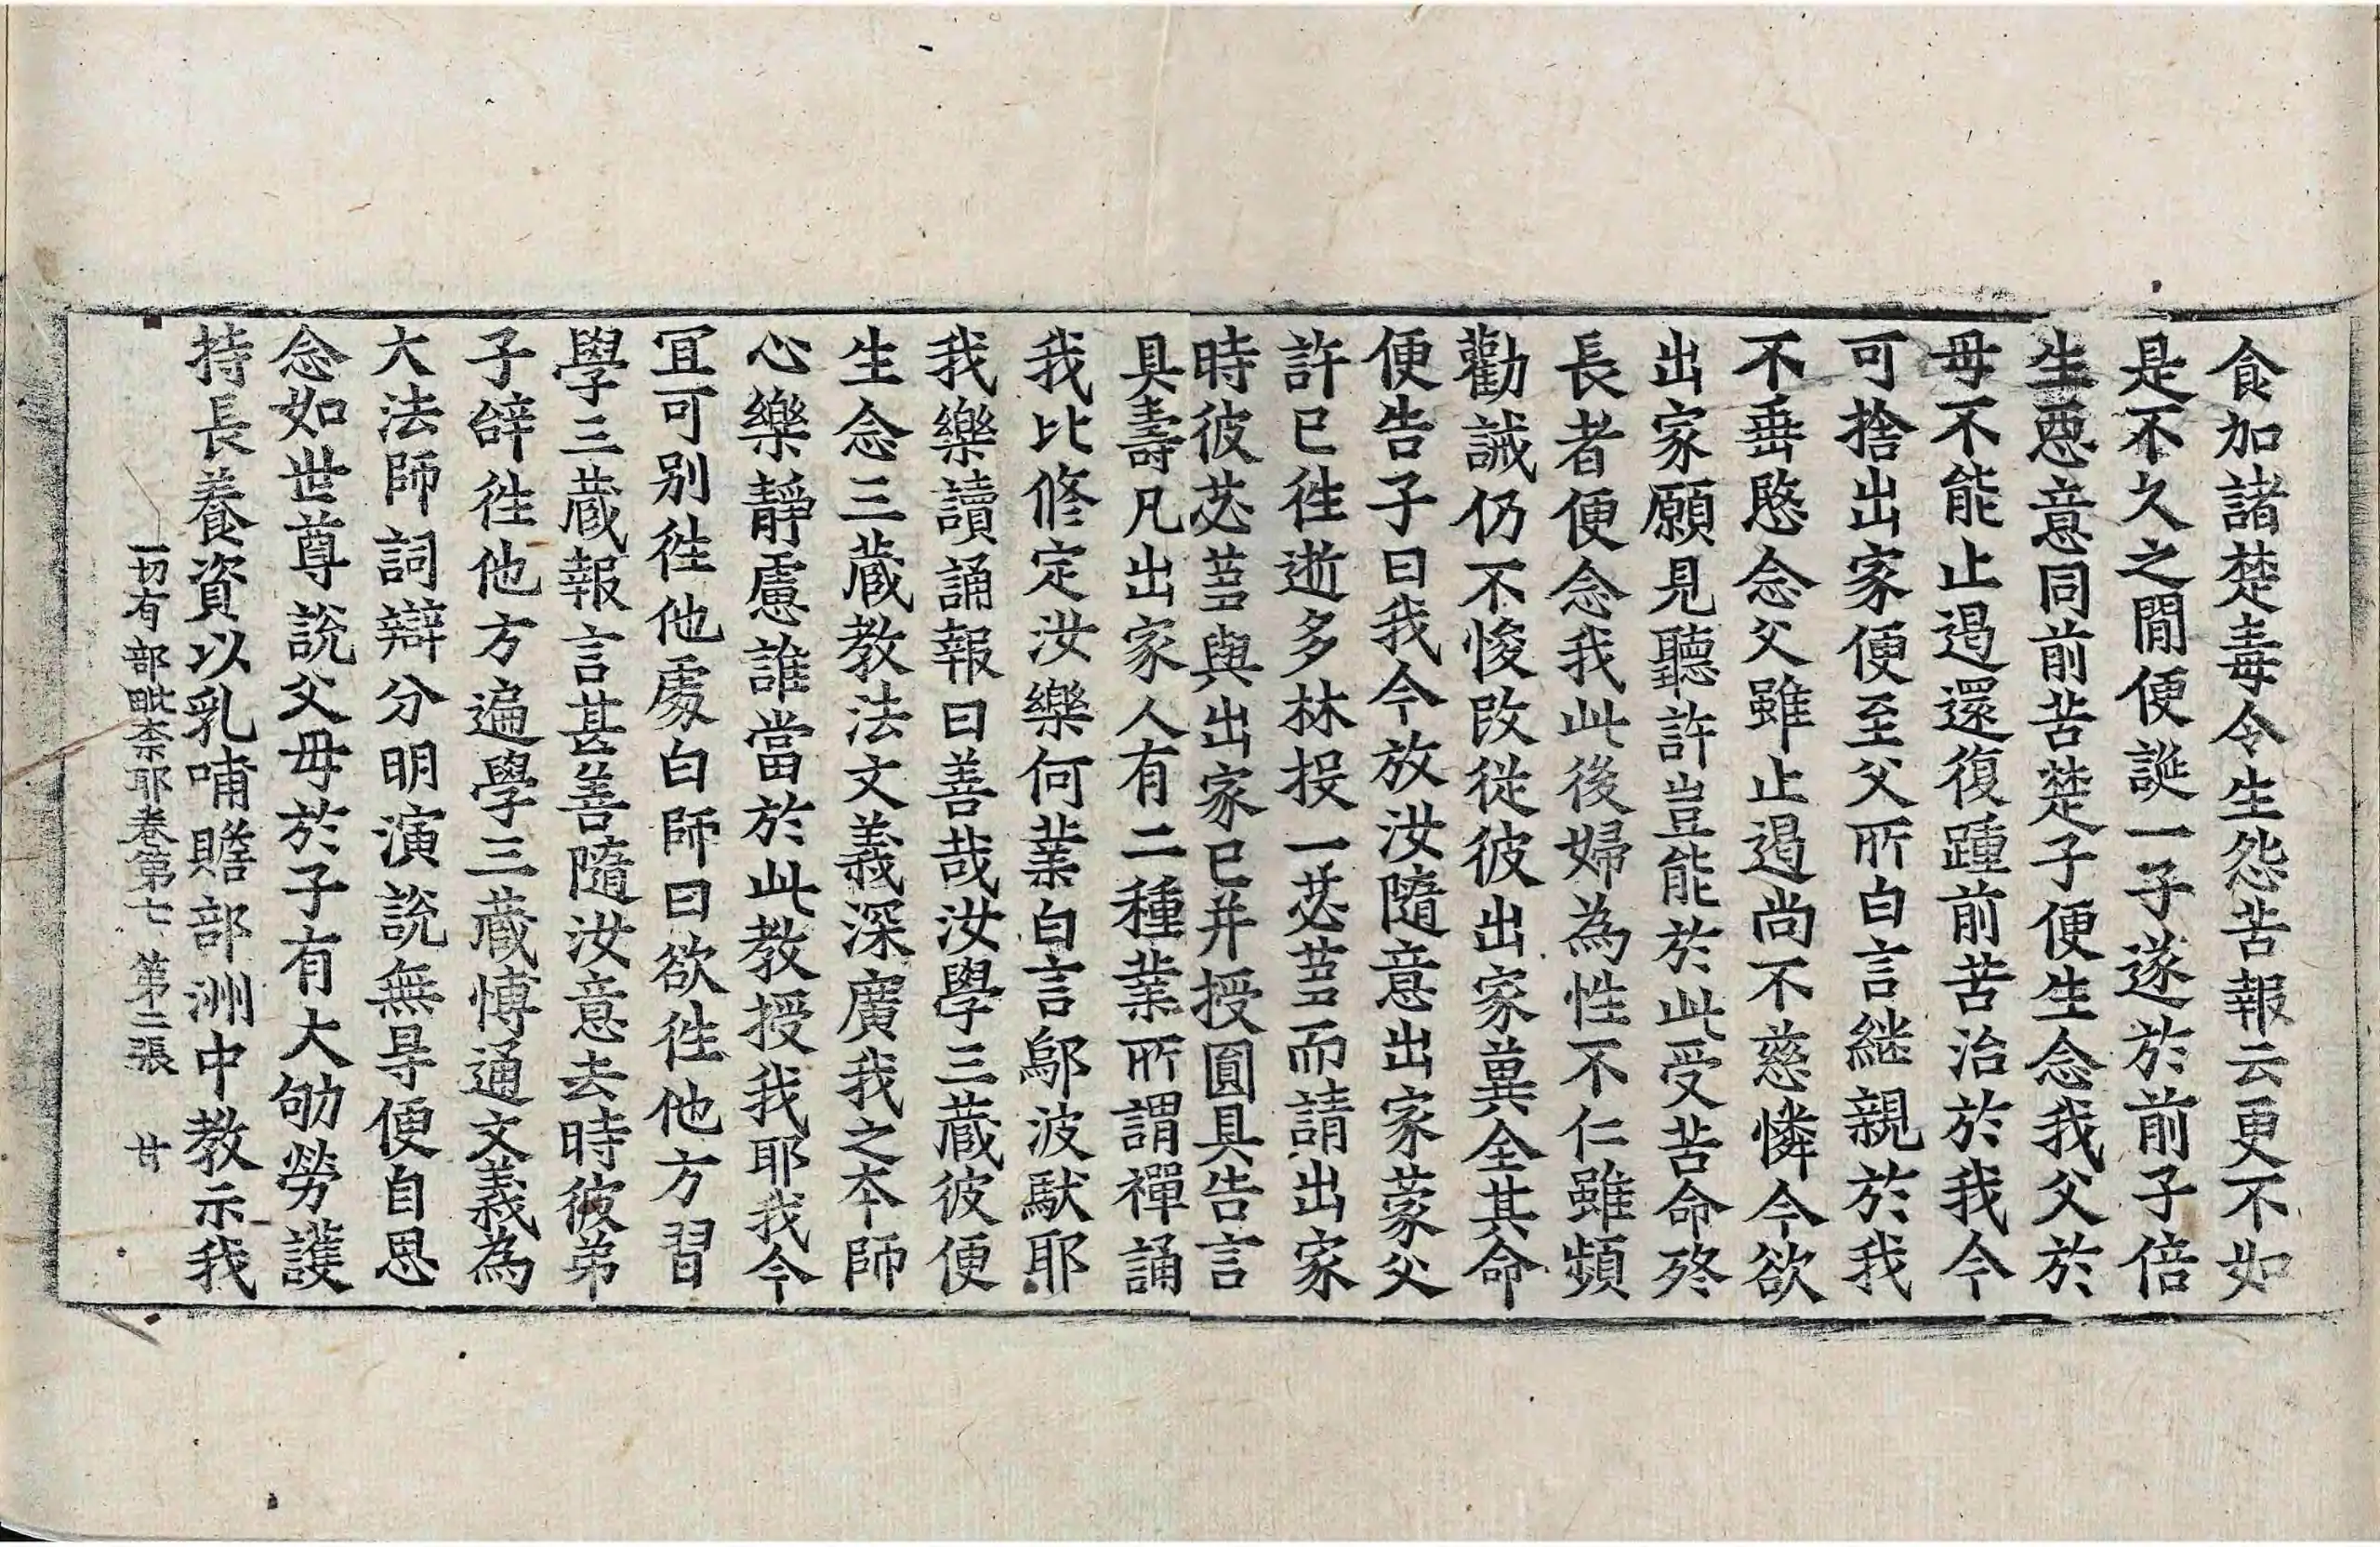 食加諸楚毒令生怨苦報云更不如
是不久之間便誕一子遂於前子倍
生惡意同前苦楚子便生念我父於
母不能止遏還復踵前苦治於我今
可捨出家便至父所白言継親於我
不垂愍念父雖止遏尚不慈憐今欲
出家願見聽許豈能於此受苦命終
長者便念我此後婦為性不仁雖頻
勸誡仍不悛改從彼出家冀全其命
便告子曰我今放汝隨意出家蒙父
許已徃逝多林投一苾芻而請出家
時彼苾芻與出家已并授圓具告言
具壽凡出家人有二種業所謂禪誦
我比修定汝樂何業白言鄔波馱耶
我樂讀誦報曰善哉汝學三藏彼便
生念三藏教法文義深廣我之夲師
心樂靜慮誰當於此教授我耶我今
冝可別徃他處白師曰欲徃他方習
學三藏報言甚善隨汝意去時彼弟
子辝徃他方遍學三藏愽通文義為
大法師詞辯分明演說無㝵便自思
念如世尊說父母於子有大劬勞護
持長養資以乳哺贍部洲中教示我
一切有部毗柰耶卷第七　第二張　甘